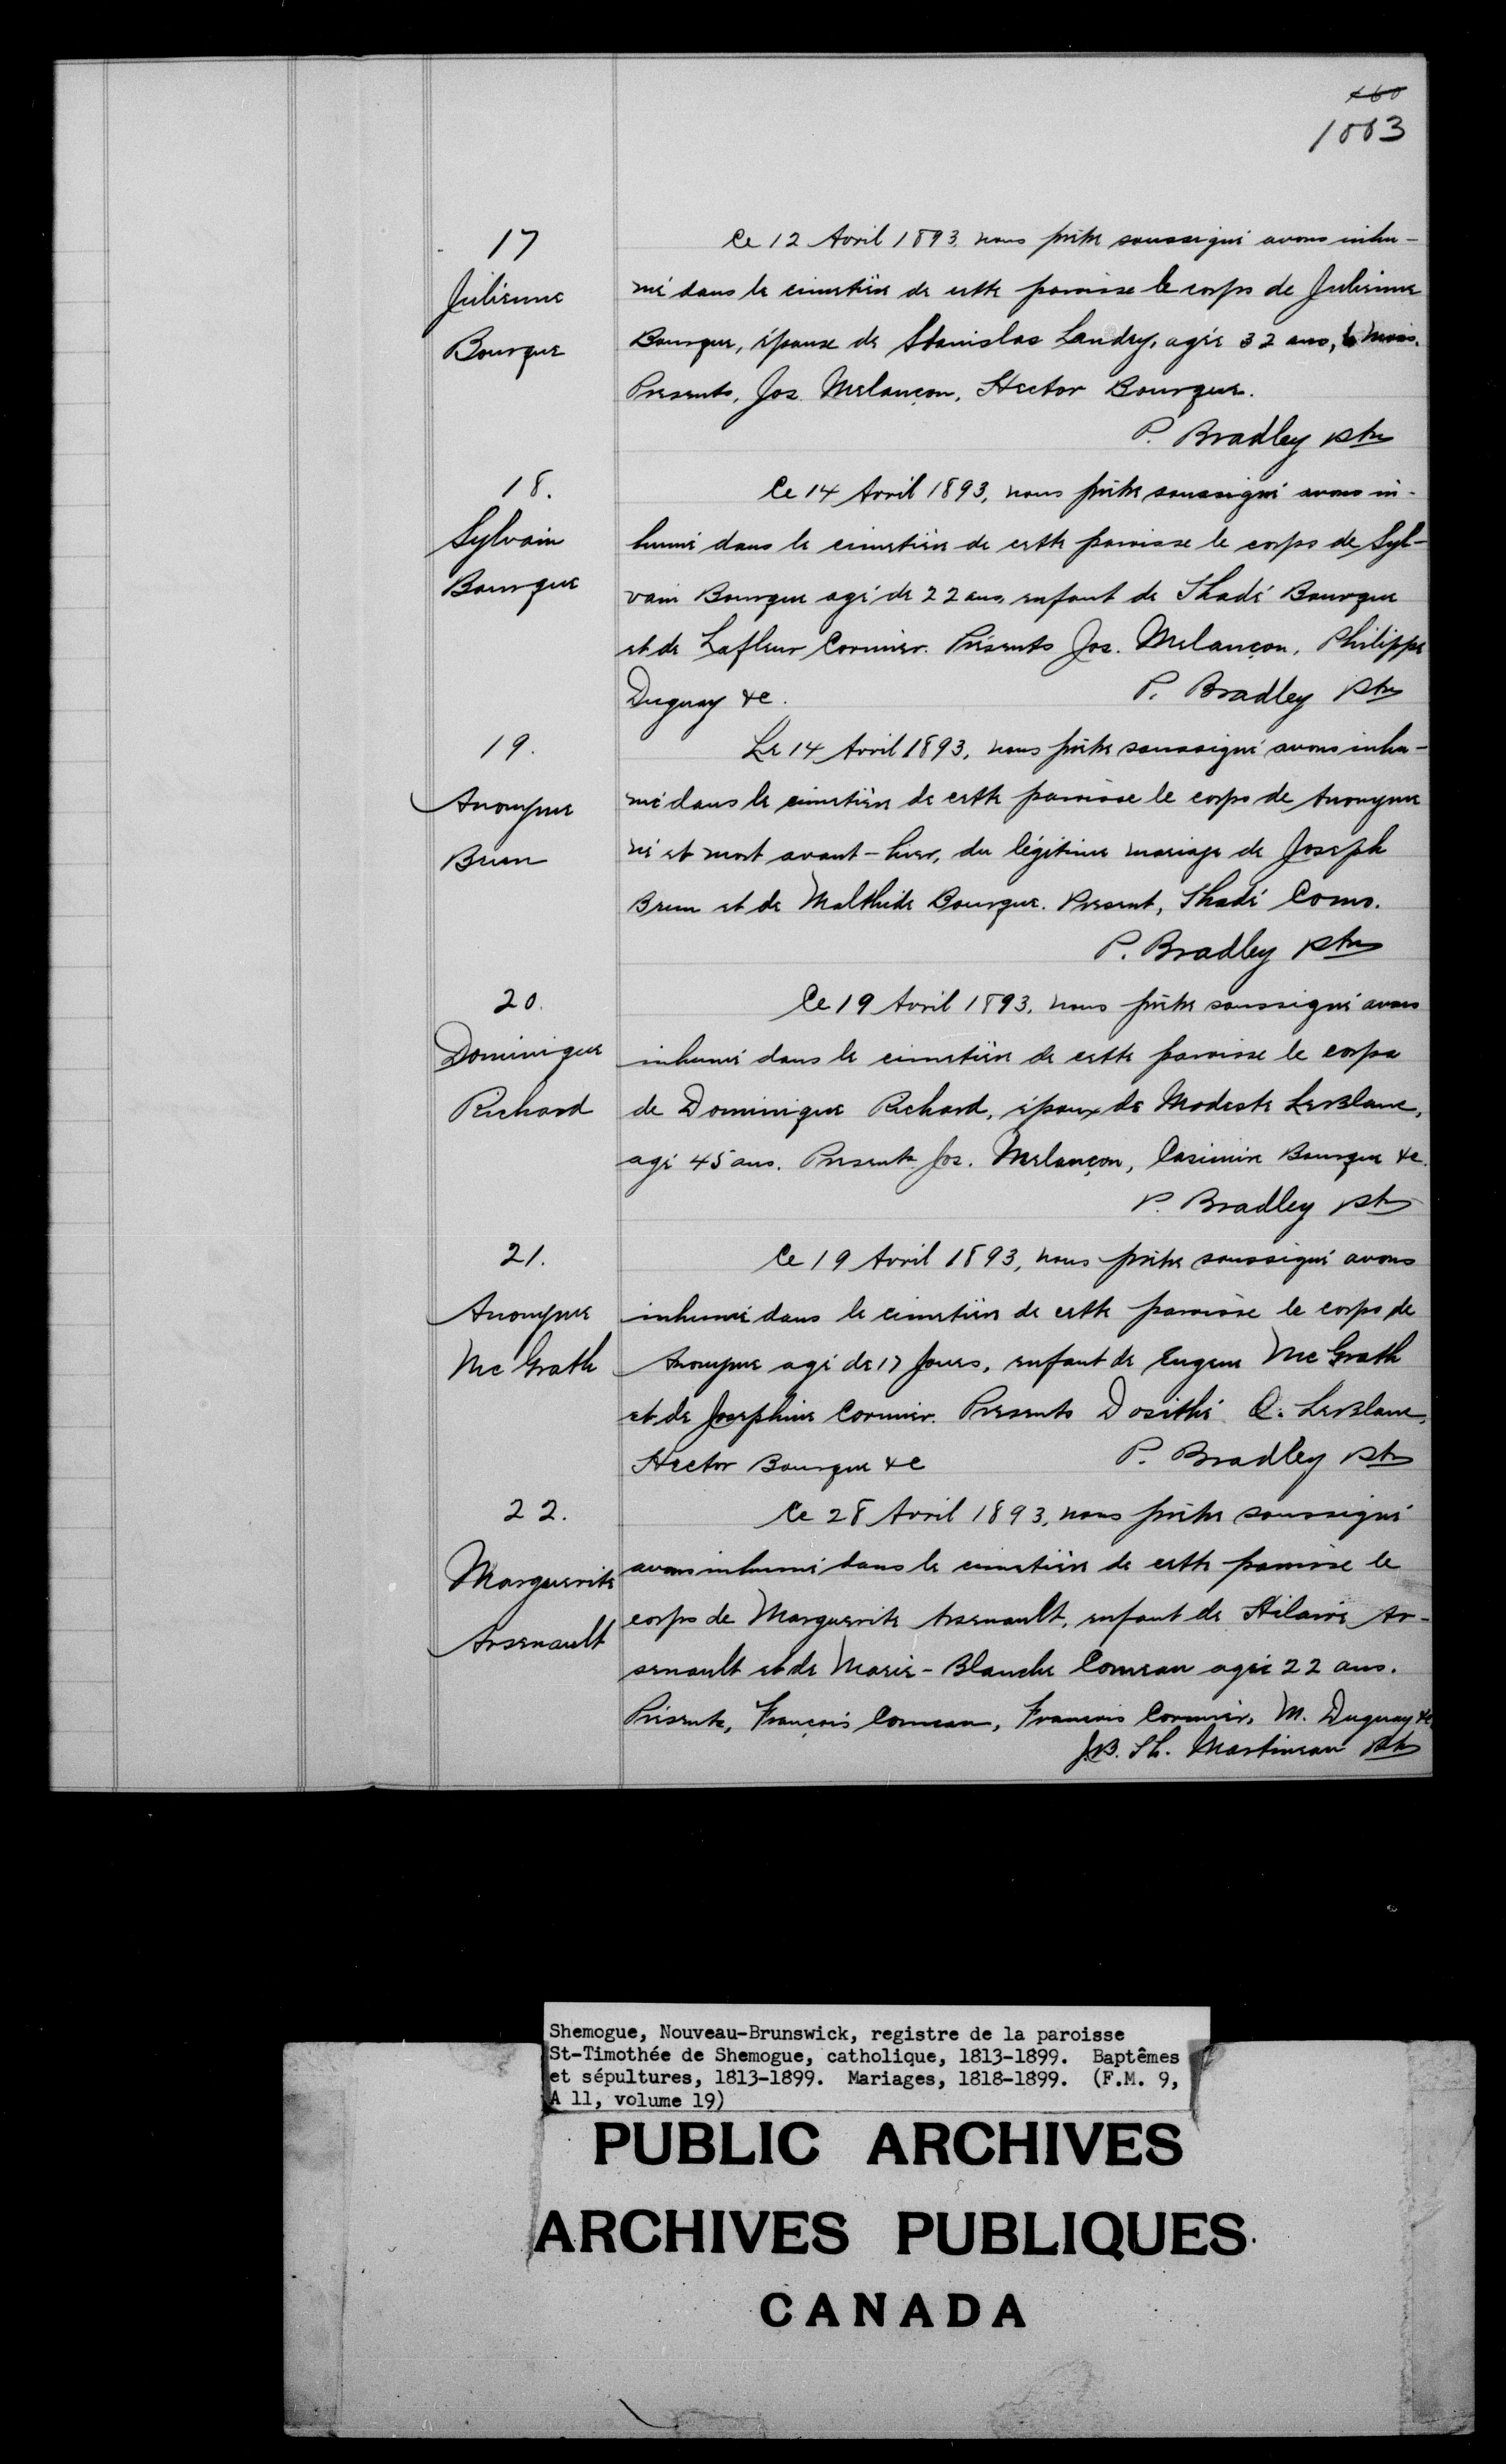 460
1003
17
Julienne
Bourque
Ce 12 Avril 1893. nous prêtre soussigné avons inhu-
mé dans le cimetière de cette paroisse le corps de Julienne
Bourque, épouse de Stanislas Landry, agée 32 ans, mois.
Presents, Jos. Melançon, Hector Bourque.
P. Bradley ptre
18.
Sylvain
Bourque
Ce 14 Avril 1893, nous prêtre soussigné avons in-
humé dans le cimetière de cette paroisse le corps de Syl-
vain Bourque agé de 22 ans, enfant de Thadé Bourque
et de Lafleur Cormier. Présents Jos. Melançon, Philippe
Duguay &c.
P. Bradley ptre
19.
Anonyme
Brun
Le 14 Avril 1893, nous prêtre soussigné avons inhu-
mé dans le cimetière de cette paroisse le corps de Anonyme
né et mort avant-hier, du légitime mariage de Joseph
Brun et de Malthide Bourque. Present, Thadé Como.
P. Bradley ptre
20.
Dominique
Richard
Ce 19 Avril 1893, nous prêtre soussigné avons
inhumé dans le cimetière de cette paroisse le corps
de Dominique Richard, époux de Modeste LeBlanc,
agé 45 ans. Presents Jos. Melançon, Casimire Bourque &c.
P. Bradley ptre
21.
Anonyme
McGrath
Ce 19 Avril 1893, nous prêtre soussigné avons
inhumé dans le cimetière de cette paroisse le corps de
Anonyme agé de 17 Jours, enfant de Eugene McGrath
et de Josephine Cormier. Presents Dosithé O. LeBlanc,
Hector Bourque &c
P. Bradley ptre
22.
Marguerite
Arsenault
Ce 28 Avril 1893, nous prêtre soussigné
avons inhumé dans le cimetière de cette paroisse le
corps de Marguerite Arsenault, enfant de Hilaire Ar-
senault et de Marie-Blanche Comeau agée 22 ans.
Présents, François Comeau, Francois Cormier, M. Duguay &c
J.B. Th. Martineau ptre
Shemogue, Nouveau-Brunswick, registre de la paroisse
St-Timothée de Shemogue, catholique, 1813-1899. Baptêmes
et sépultures, 1813-1899. Mariages, 1818-1899. (F.M. 9,
A 11, volume 19)
PUBLIC ARCHIVES
ARCHIVES PUBLIQUES
CANADA